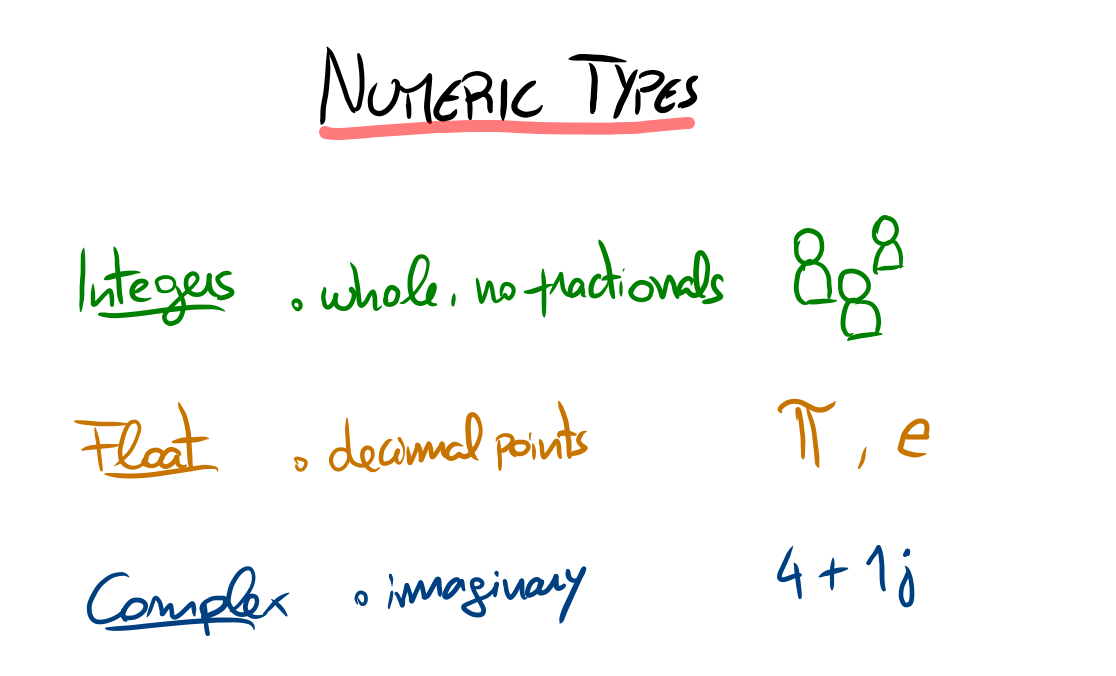 NUMERIC TYPES
Integers • whole, no fractionals
Float • decimal points π, e
Complex • imaginary 4 + 1j